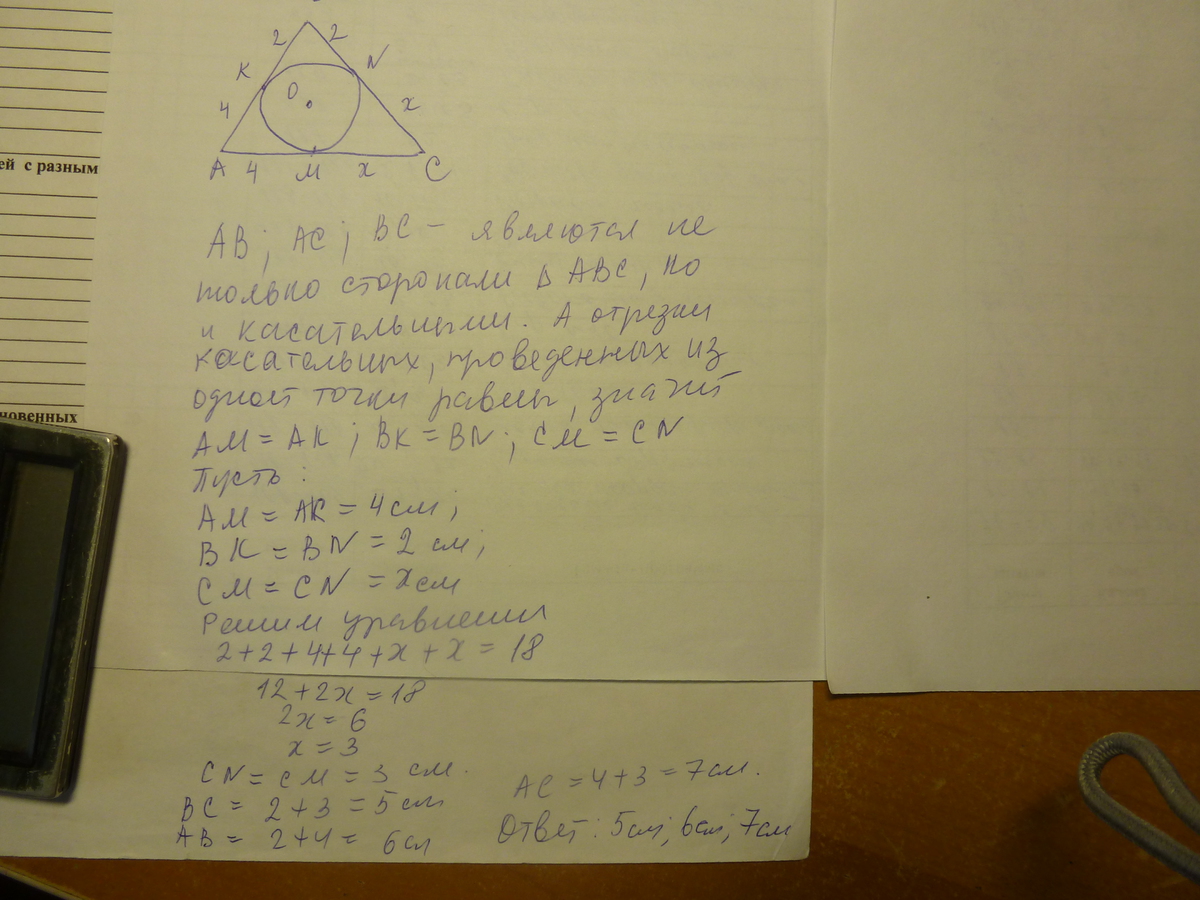 ей с разным
новенных
2 2
K N
4 O x
A 4 M x C
AB; AC; BC – являются не
только сторонами Δ ABC, но
и касательными. А отрезки
касательных, проведенных из
одной точки равны, значит
AM = AK; BK = BN; CM = CN
Пусть:
AM = AK = 4 см;
BK = BN = 2 см;
CM = CN = x см
Решим уравнение
2+2+4+4+x+x=18
12+2x=18
2x=6
x=3
CN = CM = 3 см.
BC = 2+3 = 5 см
AB = 2+4 = 6 см
AC = 4+3 = 7 см.
Ответ: 5 см; 6 см; 7 см